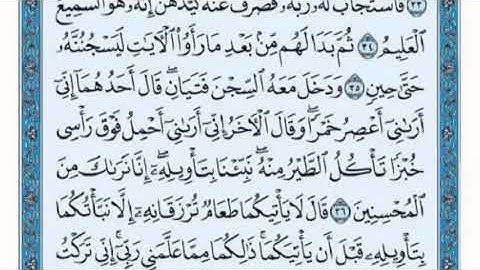 ٣٣ فَاسْتَجَابَ لَهُ رَبُّهُ فَصَرَفَ عَنْهُ كَيْدَهُنَّ إِنَّهُ هُوَ السَّمِيعُ
الْعَلِيمُ ٣٤ ثُمَّ بَدَا لَهُم مِّنۢ بَعْدِ مَا رَأَوُا الْآيَاتِ لَيَسْجُنُنَّهُ
حَتَّىٰ حِينٍ ٣٥ وَدَخَلَ مَعَهُ السِّجْنَ فَتَيَانِ ۖ قَالَ أَحَدُهُمَا إِنِّي
أَرَانِي أَعْصِرُ خَمْرًا ۖ وَقَالَ الْآخَرُ إِنِّي أَرَانِي أَحْمِلُ فَوْقَ رَأْسِي
خُبْزًا تَأْكُلُ الطَّيْرُ مِنْهُ ۖ نَبِّئْنَا بِتَأْوِيلِهِ ۖ إِنَّا نَرَاكَ مِنَ
الْمُحْسِنِينَ ٣٦ قَالَ لَا يَأْتِيكُمَا طَعَامٌ تُرْزَقَانِهِ إِلَّا نَبَّأْتُكُمَا
بِتَأْوِيلِهِ قَبْلَ أَن يَأْتِيَكُمَا ۚ ذَٰلِكُمَا مِمَّا عَلَّمَنِي رَبِّي ۚ إِنِّي تَرَكْتُ